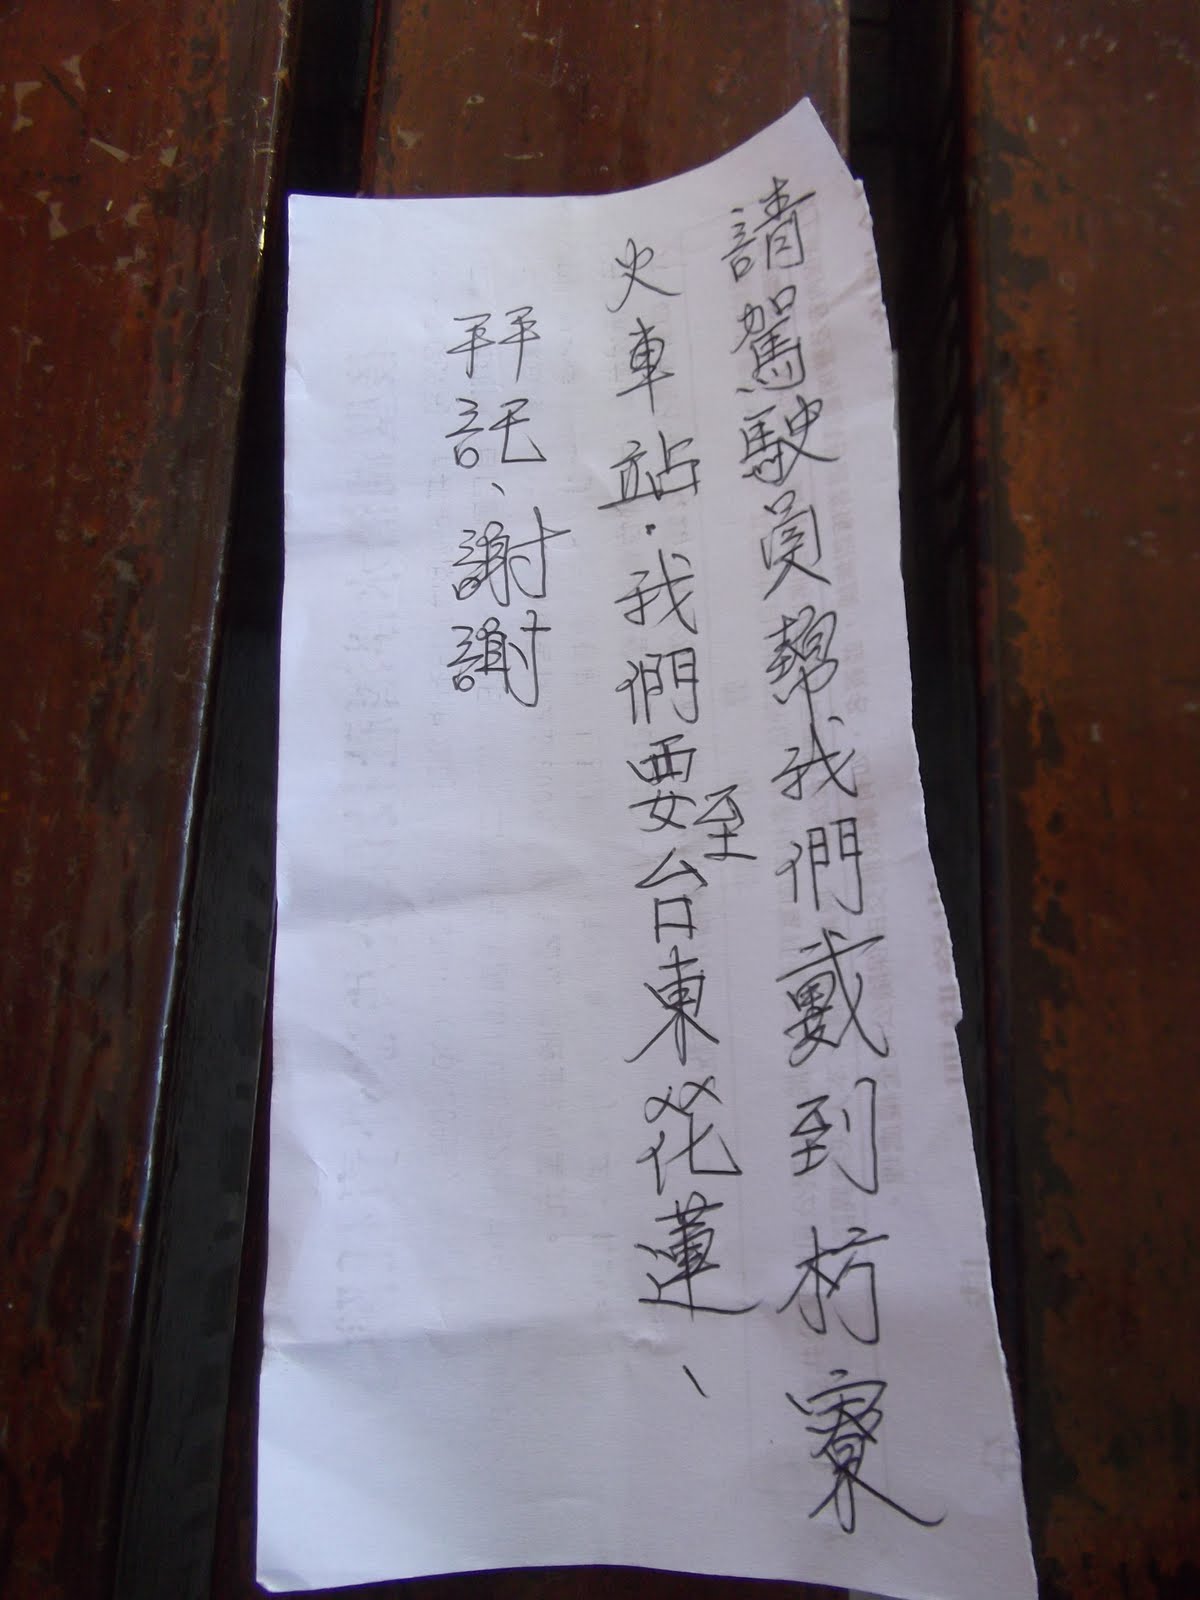 請駕駛員幫我們戴到枋寮
火車站．我們要至台東花蓮、
拜託、謝謝